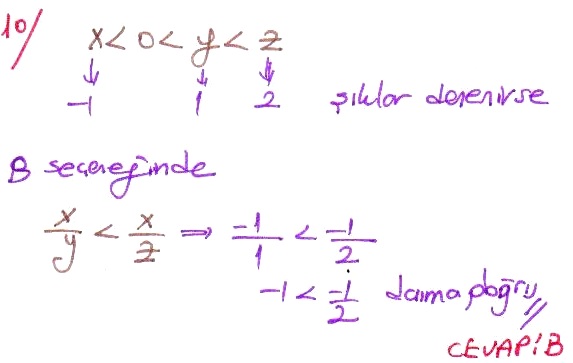 10/
x < 0 < y < z
↓ ↓ ↓
-1 1 2 şıklar denenirse
B seçeneğinde
x/y < x/z ⇒ -1/1 < -1/2
-1 < -1/2 daima doğru //
CEVAP: B